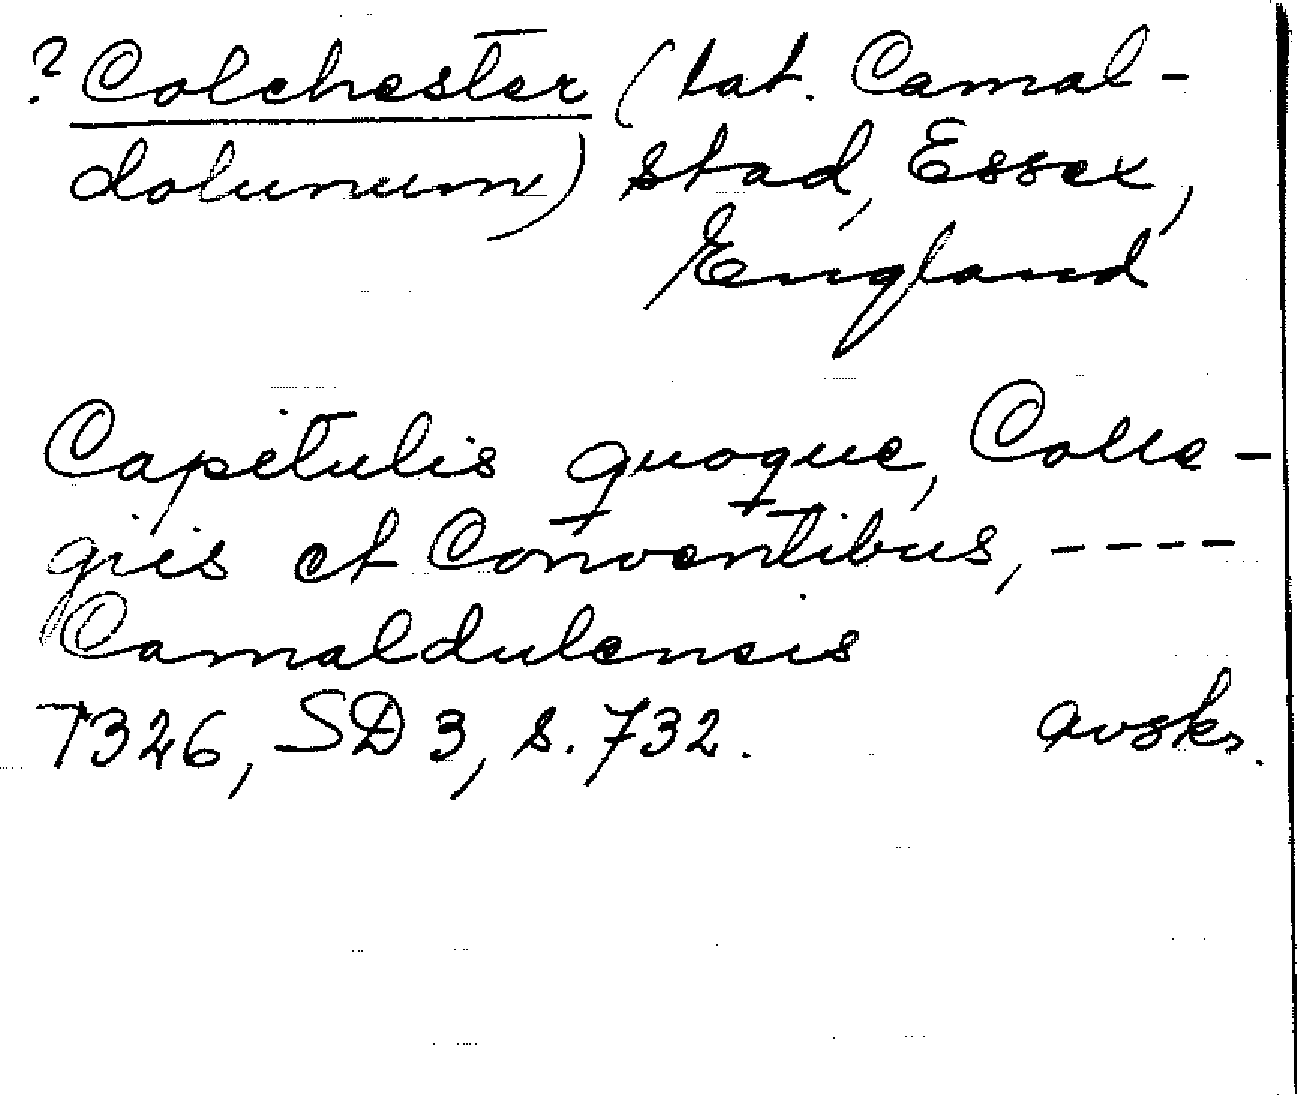 ? Colchester (lat. Camal-
dolunum) stad, Essex,
England
Capitulis quoque, Colle-
giis et Conventibus, ----
Camaldulensis
1326, SD 3, s. 732. avskr.